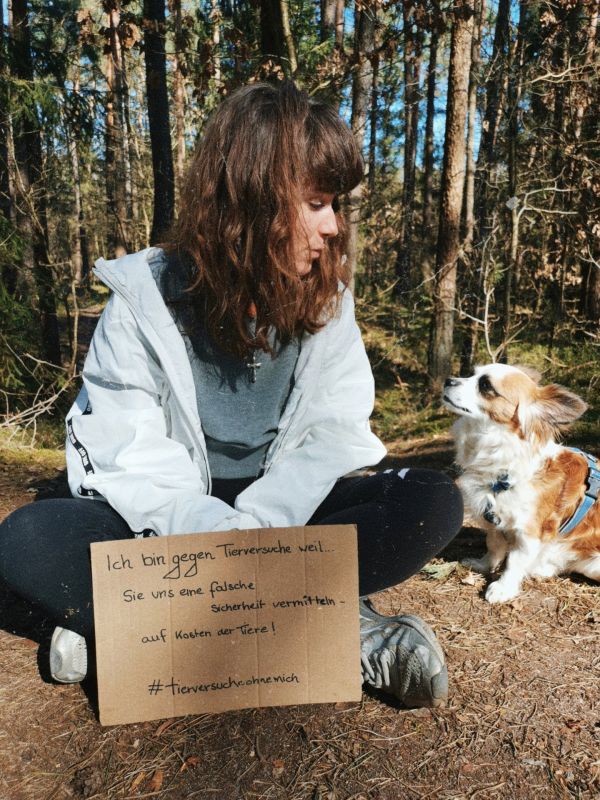 Ich bin gegen Tierversuche weil...
Sie uns eine falsche
Sicherheit vermitteln -
auf Kosten der Tiere!
#tierversucheohnemich